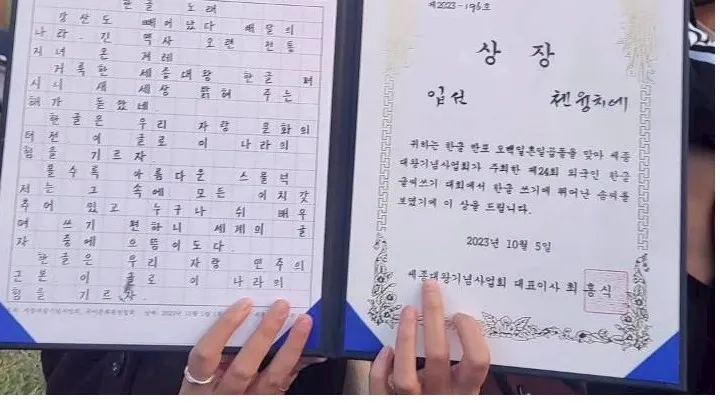 한글 노래
강산도 빼어났다 배달의
나라 긴 역사 오랜 전통
지녀 온 겨레
거룩한 세종대왕 한글 펴
시니 새 세상 밝혀 주는
해가 돋았네
한글은 우리 자랑 문화의
터전 이 글로 이 나라의
힘을 기르자
볼수록 아름다운 스물넉
자는 그 속에 모든 이치 갖
추어 있고 누구나 쉬 배우
며 쓰기 편하니 세계의 글
자 중에 으뜸이도다.
한글은 우리 자랑 민주의
근본 이 글로 이 나라의
힘을 기르자.
제2023-196호
상장
입선 첸웡치에
귀하는 한글 반포 오백일흔일곱돌을 맞아 세종
대왕기념사업회가 주최한 제24회 외국인 한글
글씨쓰기 대회에서 한글 쓰기에 뛰어난 솜씨를
보였기에 이 상을 드립니다.
2023년 10월 5일
세종대왕기념사업회 대표이사 최홍식